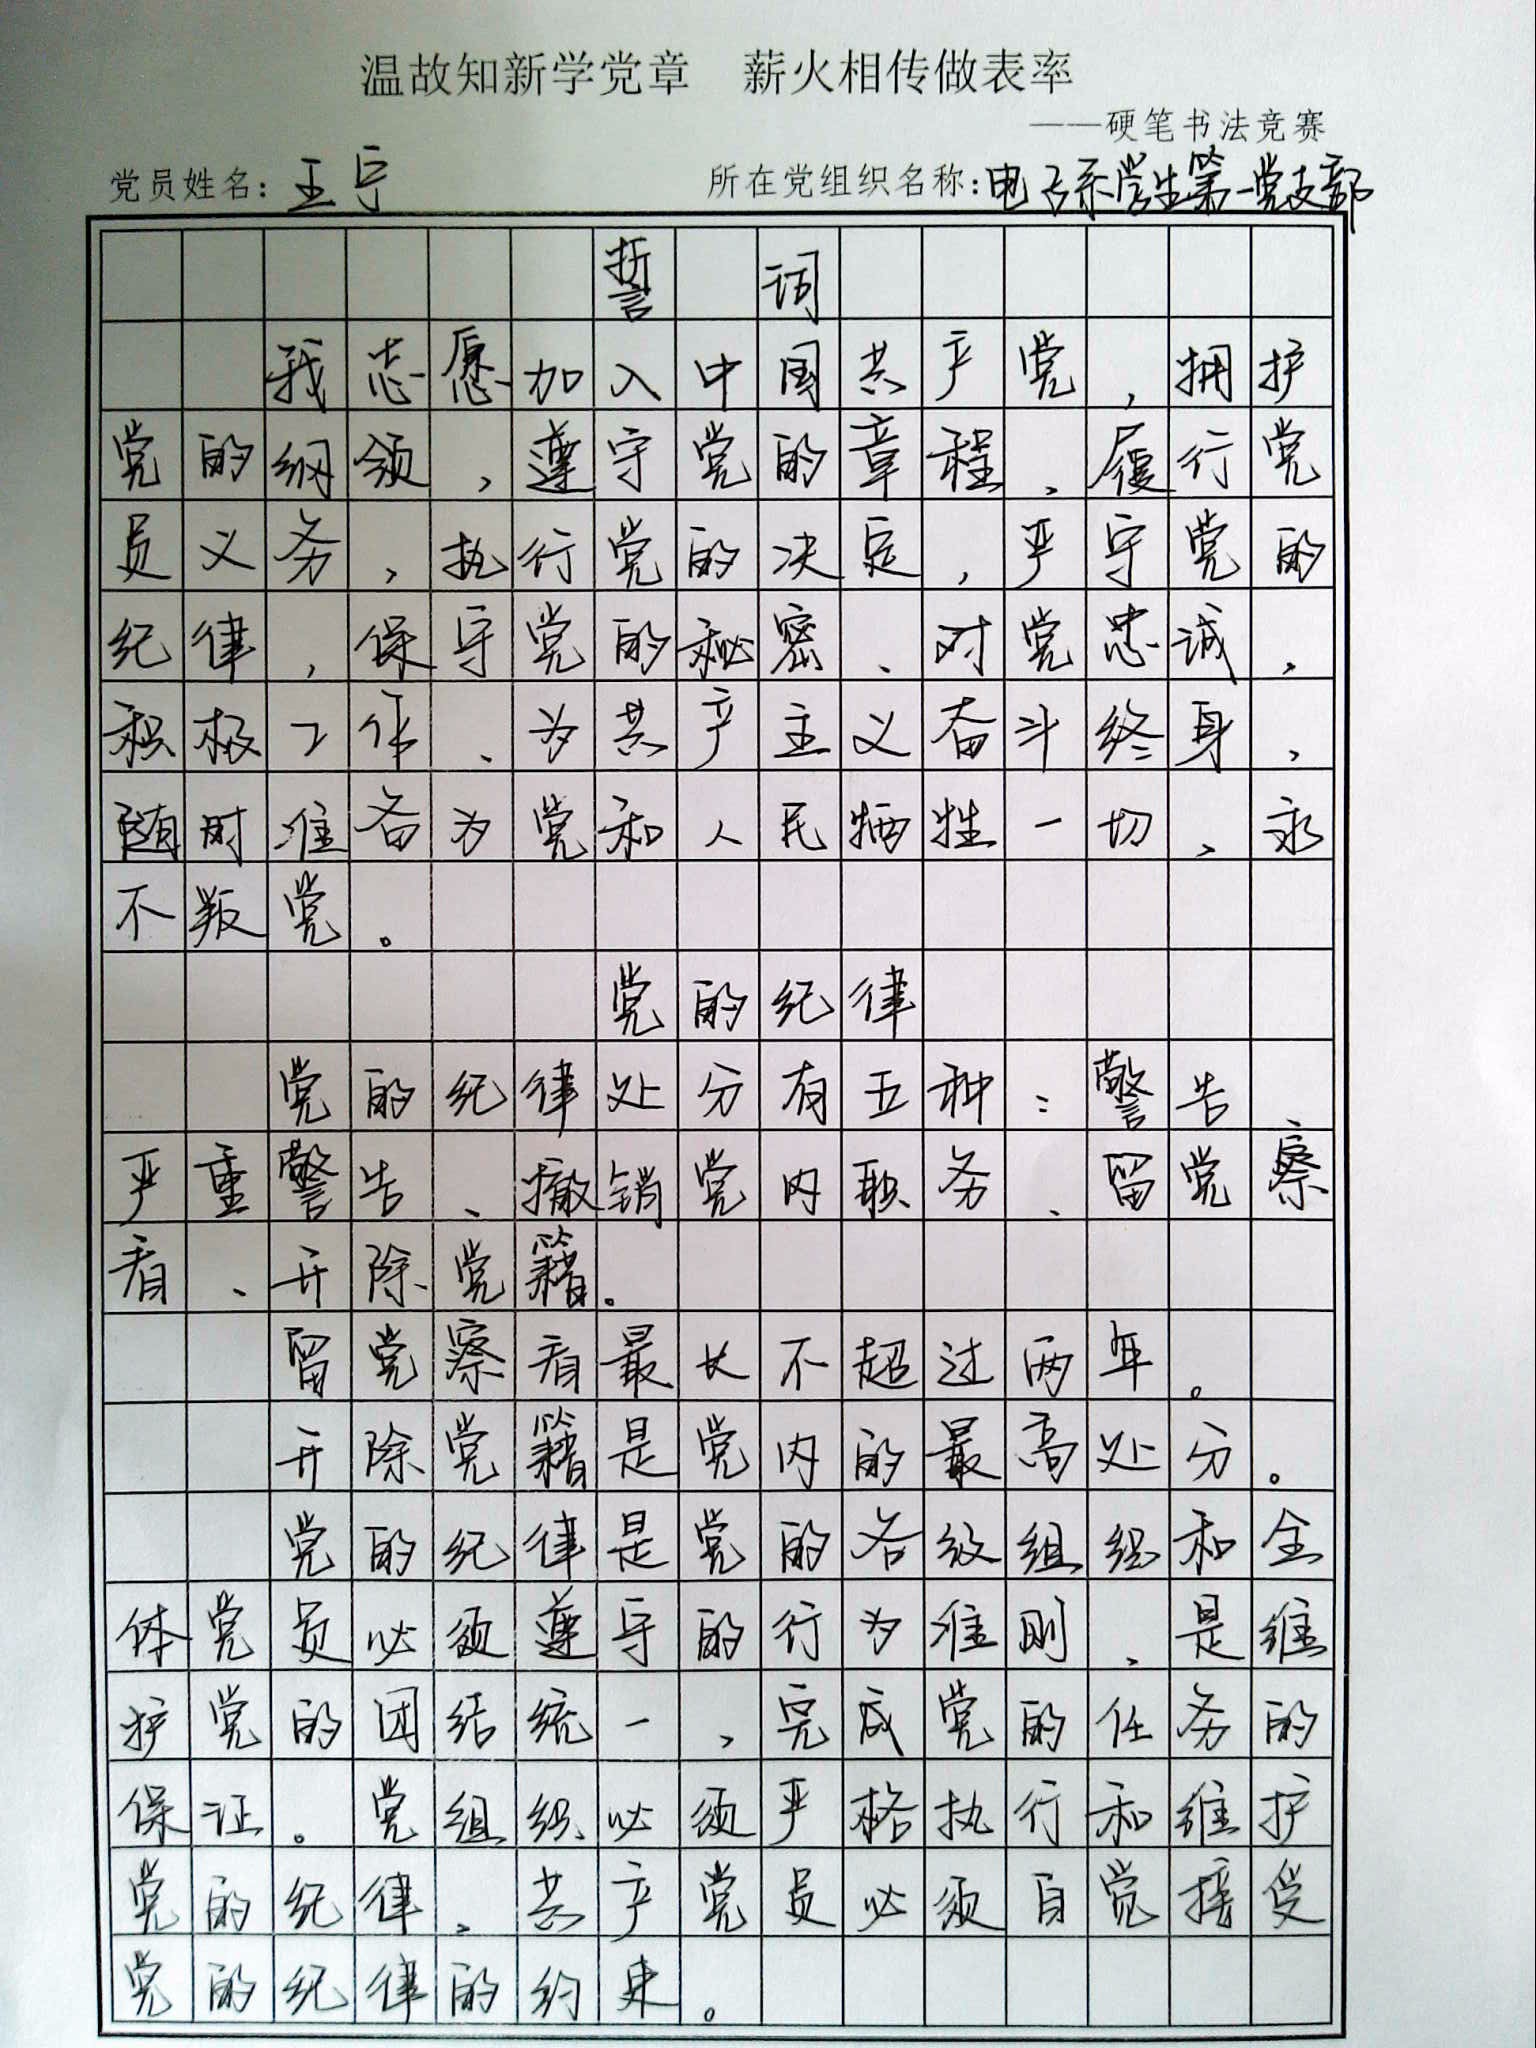 温故知新学党章 薪火相传做表率
——硬笔书法竞赛
党员姓名: 王宁 所在党组织名称: 电子系学生第一党支部
誓 词
我志愿加入中国共产党,拥护
党的纲领,遵守党的章程、履行党
员义务,执行党的决定,严守党的
纪律,保守党的秘密、对党忠诚,
积极工作、为共产主义奋斗终身,
随时准备为党和人民牺牲一切、永
不叛党。
党的纪律
党的纪律处分有五种:警告、
严重警告、撤销党内职务、留党察
看、开除党籍。
留党察看最长不超过两年。
开除党籍是党内的最高处分。
党的纪律是党的各级组织和全
体党员必须遵守的行为准则、是维
护党的团结统一,完成党的任务的
保证。党组织必须严格执行和维护
党的纪律,共产党员必须自觉接受
党的纪律的约束。